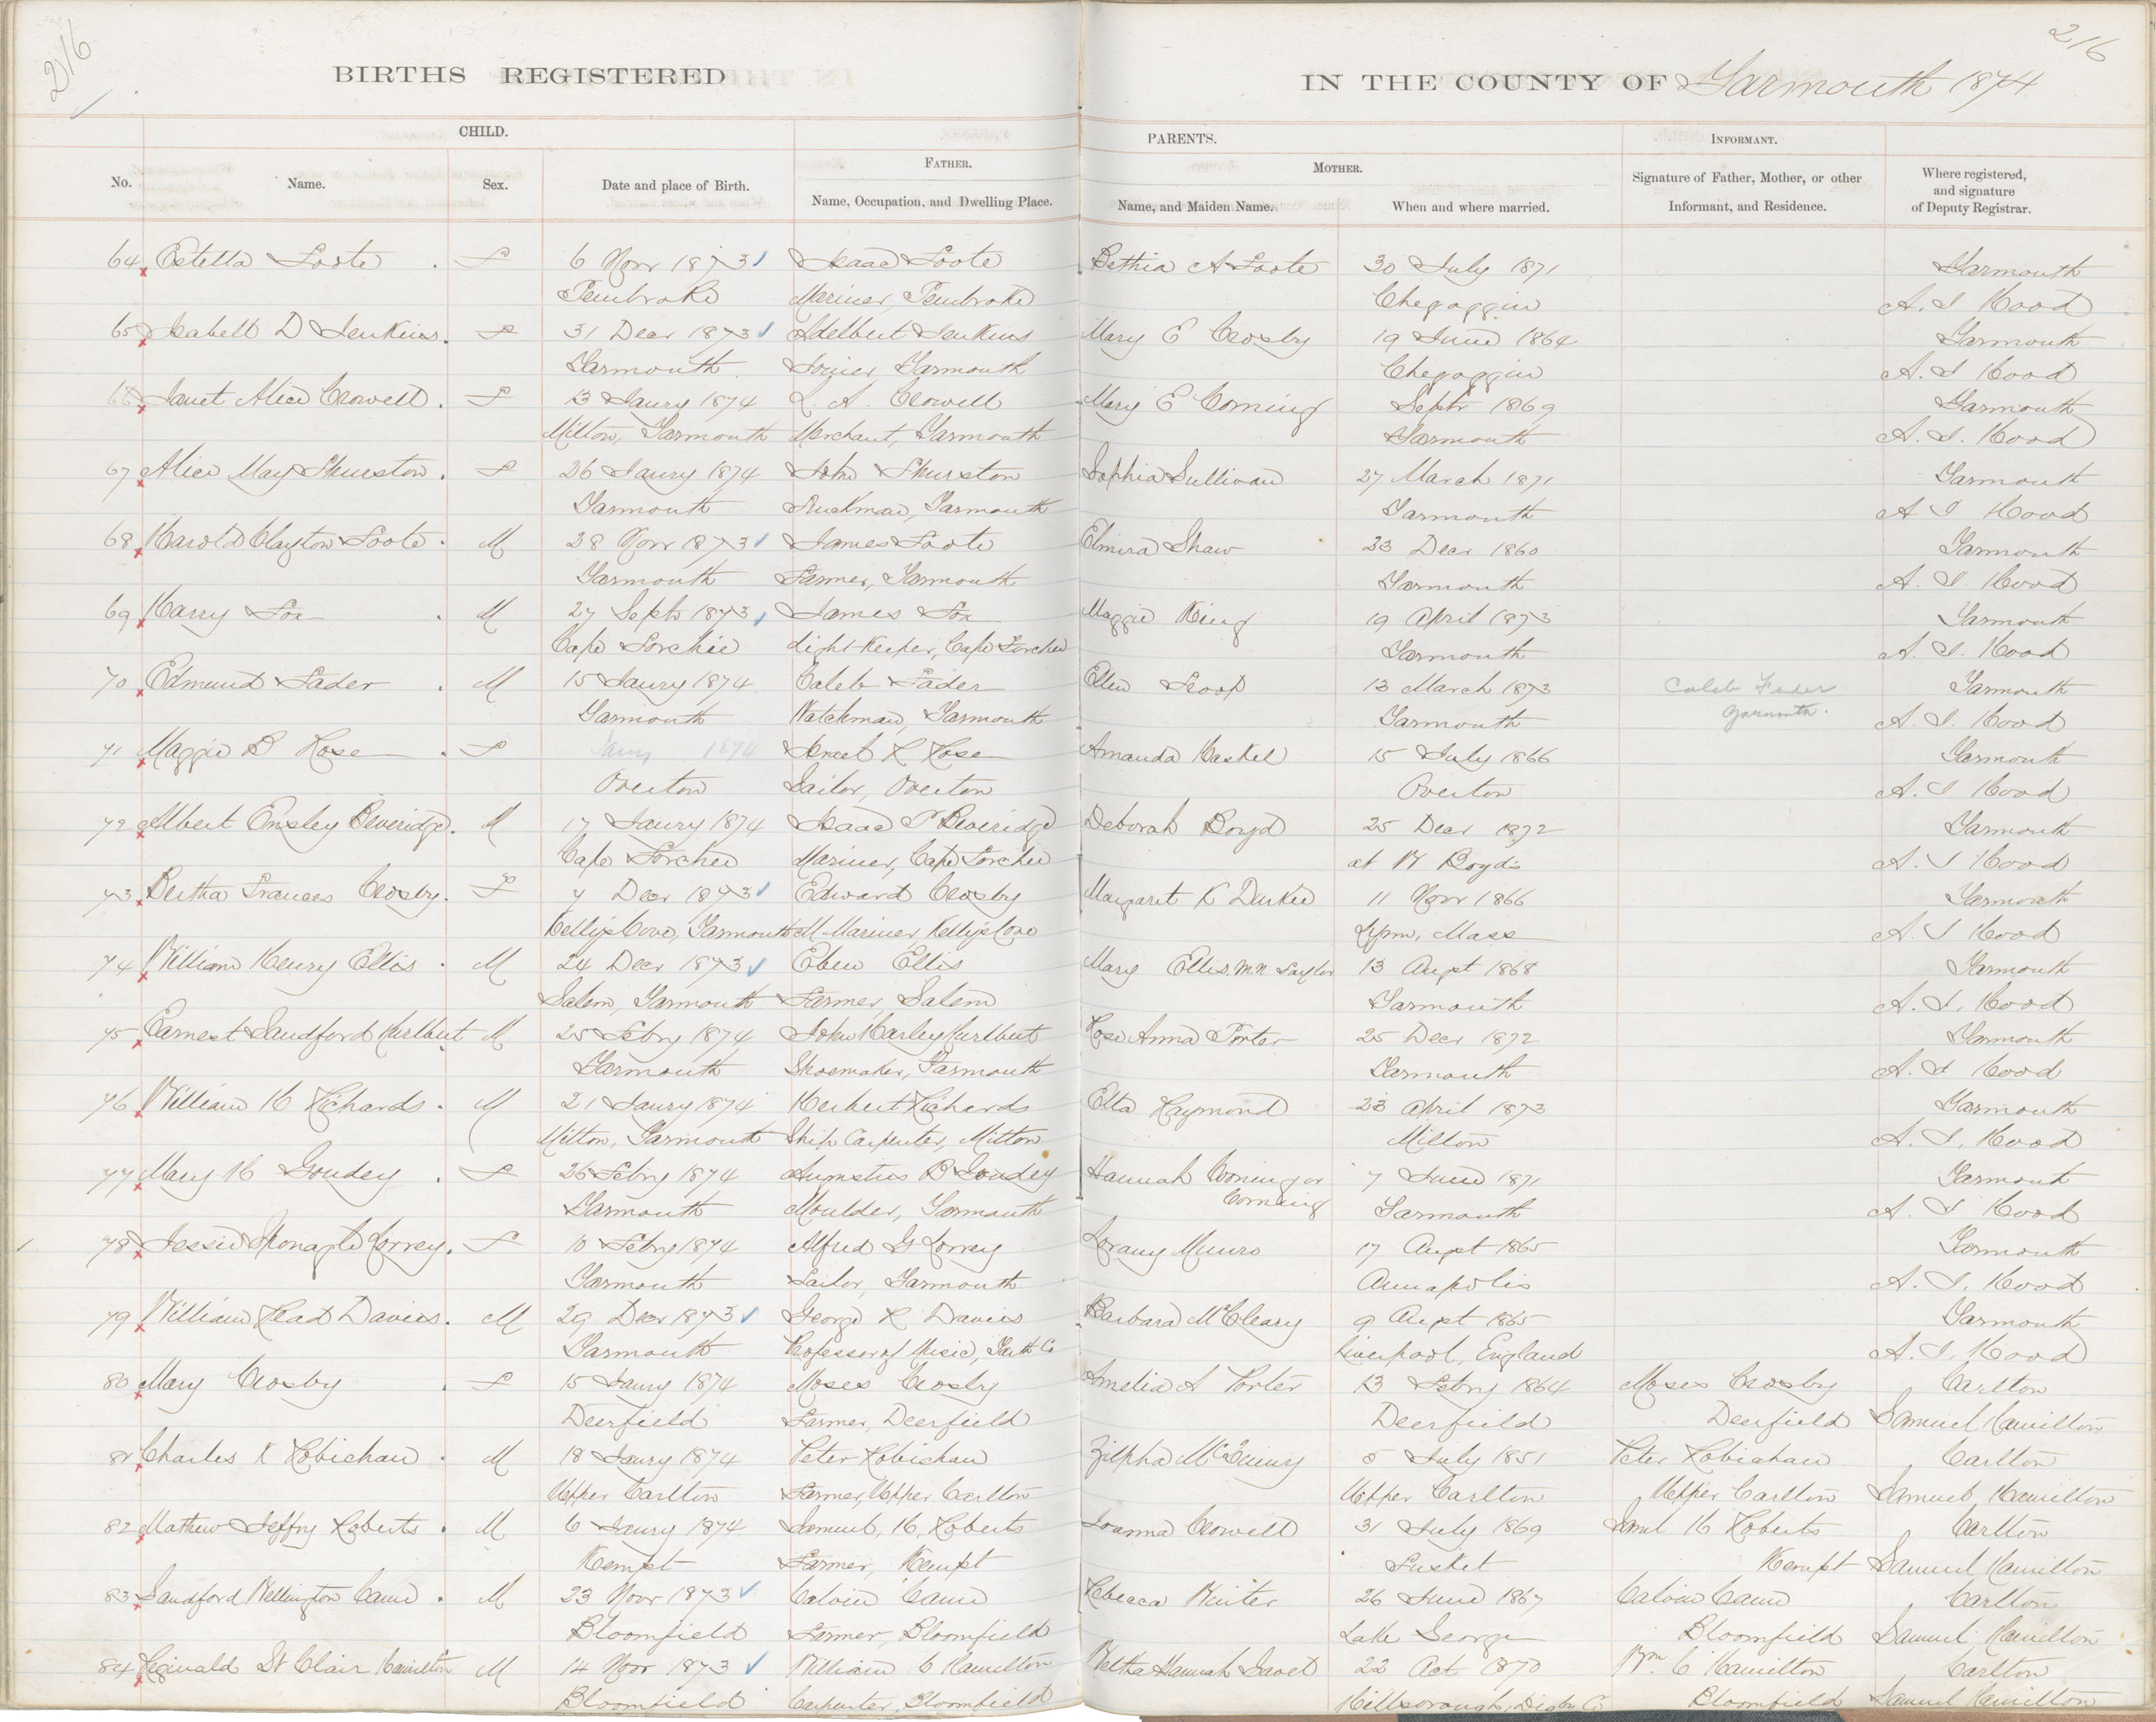 216
216
BIRTHS REGISTERED
IN THE COUNTY OF Yarmouth 1874
CHILD.
PARENTS.
INFORMANT.
No.
Name.
Sex.
Date and place of Birth.
FATHER.
Name, Occupation, and Dwelling Place.
MOTHER.
Name, and Maiden Name.
When and where married.
Signature of Father, Mother, or other
Informant, and Residence.
Where registered,
and signature
of Deputy Registrar.
64 Estella Foote . F 6 Novr 1873 Isaac Foote Bethia A Foote 30 July 1871 Yarmouth
Pembroke Mariner, Pembroke Chegoggin A. J Hood
65 Isabell D Jenkins. F 31 Decr 1873 Adelbert Jenkins Mary E Crosby 19 June 1864 Yarmouth
Yarmouth Joiner Yarmouth Chegoggin A. J Hood
66 Janet Alice Crowell. F 13 Jaury 1874 L. A. Crowell Mary E Corning Septr 1869 Yarmouth
Milton, Yarmouth Merchant, Yarmouth Yarmouth A. J. Hood
67 Alice May Thurston. F 26 Jaury 1874 John Thurston Sophia Sullivan 27 March 1871 Yarmouth
Yarmouth Truckman, Yarmouth Yarmouth A J Hood
68 Harold Clayton Foote. M 28 Novr 1873 James Foote Elmira Shaw 23 Decr 1860 Yarmouth
Yarmouth Farmer, Yarmouth Yarmouth A. J. Hood
69 Harry Fox . M 27 Septr 1873 James Fox Maggie King 19 April 1873 Yarmouth
Cape Forchie Light Keeper, Cape Forchie Yarmouth A. J. Hood
70 Edmund Fader . M 15 Jaury 1874 Caleb Fader Ellen Scoop 13 March 1873 Caleb Fader Yarmouth
Yarmouth Watchman, Yarmouth Yarmouth Yarmouth. A. J. Hood
71 Maggie B Rose . F Jaury 1874 Israel R Rose Amanda Haskel 15 July 1866 Yarmouth
Overton Sailor, Overton Overton A. J Hood
72 Albert Ensley Beveridge. M 17 Jaury 1874 Isaac P Beveridge Deborah Boyd 25 Decr 1872 Yarmouth
Cape Forchu Mariner, Cape Forchu at W Boyds A. J Hood
73 Bertha Frances Crosby. F 7 Decr 1873 Edward Crosby Margaret K Durkee 11 Novr 1866 Yarmouth
Kellys Cove, Yarmouth M. Mariner, Kellys Cove Lynn, Mass A. J Hood
74 William Henry Ellis . M 24 Decr 1873 Eben Ellis Mary Ellis. M.N Saylor 13 Augst 1868 Yarmouth
Salem, Yarmouth Farmer, Salem Yarmouth A. J. Hood
75 Earnest Sandford Hurlburt M 25 Febry 1874 John Harley Hurlburt Rose Anna Porter 25 Decr 1872 Yarmouth
Yarmouth Shoemaker, Yarmouth Yarmouth A. J Hood
76 William H Richards . M 21 Jaury 1874 Herbert Richards Etta Raymond 23 April 1873 Yarmouth
Milton, Yarmouth Ship Carpenter, Milton Milton A. J. Hood
77 Mary H Goudey . F 26 Febry 1874 Augustus B Goudey Hannah Coning or 7 June 1871 Yarmouth
Corning
Yarmouth Moulder, Yarmouth Yarmouth A. J Hood
78 Jessie Lorrey. F 10 Febry 1874 Alfred G Lorrey Lorany Munro 17 Augst 1865 Yarmouth
Yarmouth Sailor, Yarmouth Annapolis A. J. Hood
79 William Read Davies. M 29 Decr 1873 George R Davies Barbara McCleary 9 Augst 1865 Yarmouth
Yarmouth Professor of Music, Yarth Co Liverpool, England A. J. Hood
80 Mary Crosby . F 15 Jaury 1874 Moses Crosby Amelia A Porter 13 Febry 1864 Moses Crosby Carlton
Deerfield Farmer, Deerfield Deerfield Deerfield Samuel Hamilton
81 Charles K Robichau . M 18 Jaury 1874 Peter Robichau Zilpha 5 July 1851 Peter Robichau Carlton
Upper Carlton Farmer, Upper Carlton Upper Carlton Upper Carlton Samuel Hamilton
82 Mathew Jeffry Roberts . M 6 Jaury 1874 Samuel, H, Roberts Joanna Crowell 31 July 1869 Saml H Roberts Carlton
Kempt Farmer, Kempt Tusket Kempt Samuel Hamilton
83 Sandford Wellington Cann . M 23 Novr 1873 Calvin Cann Rebecca Winter 26 June 1867 Calvin Cann Carlton
Bloomfield Farmer, Bloomfield Lake George Bloomfield Samuel Hamilton
84 Reginald St Clair Hamilton M 14 Novr 1873 William C Hamilton Hannah 22 Oct 1870 Wm C Hamilton Carlton
Bloomfield Carpenter, Bloomfield Hillsborough, Digby Co Bloomfield Samuel Hamilton